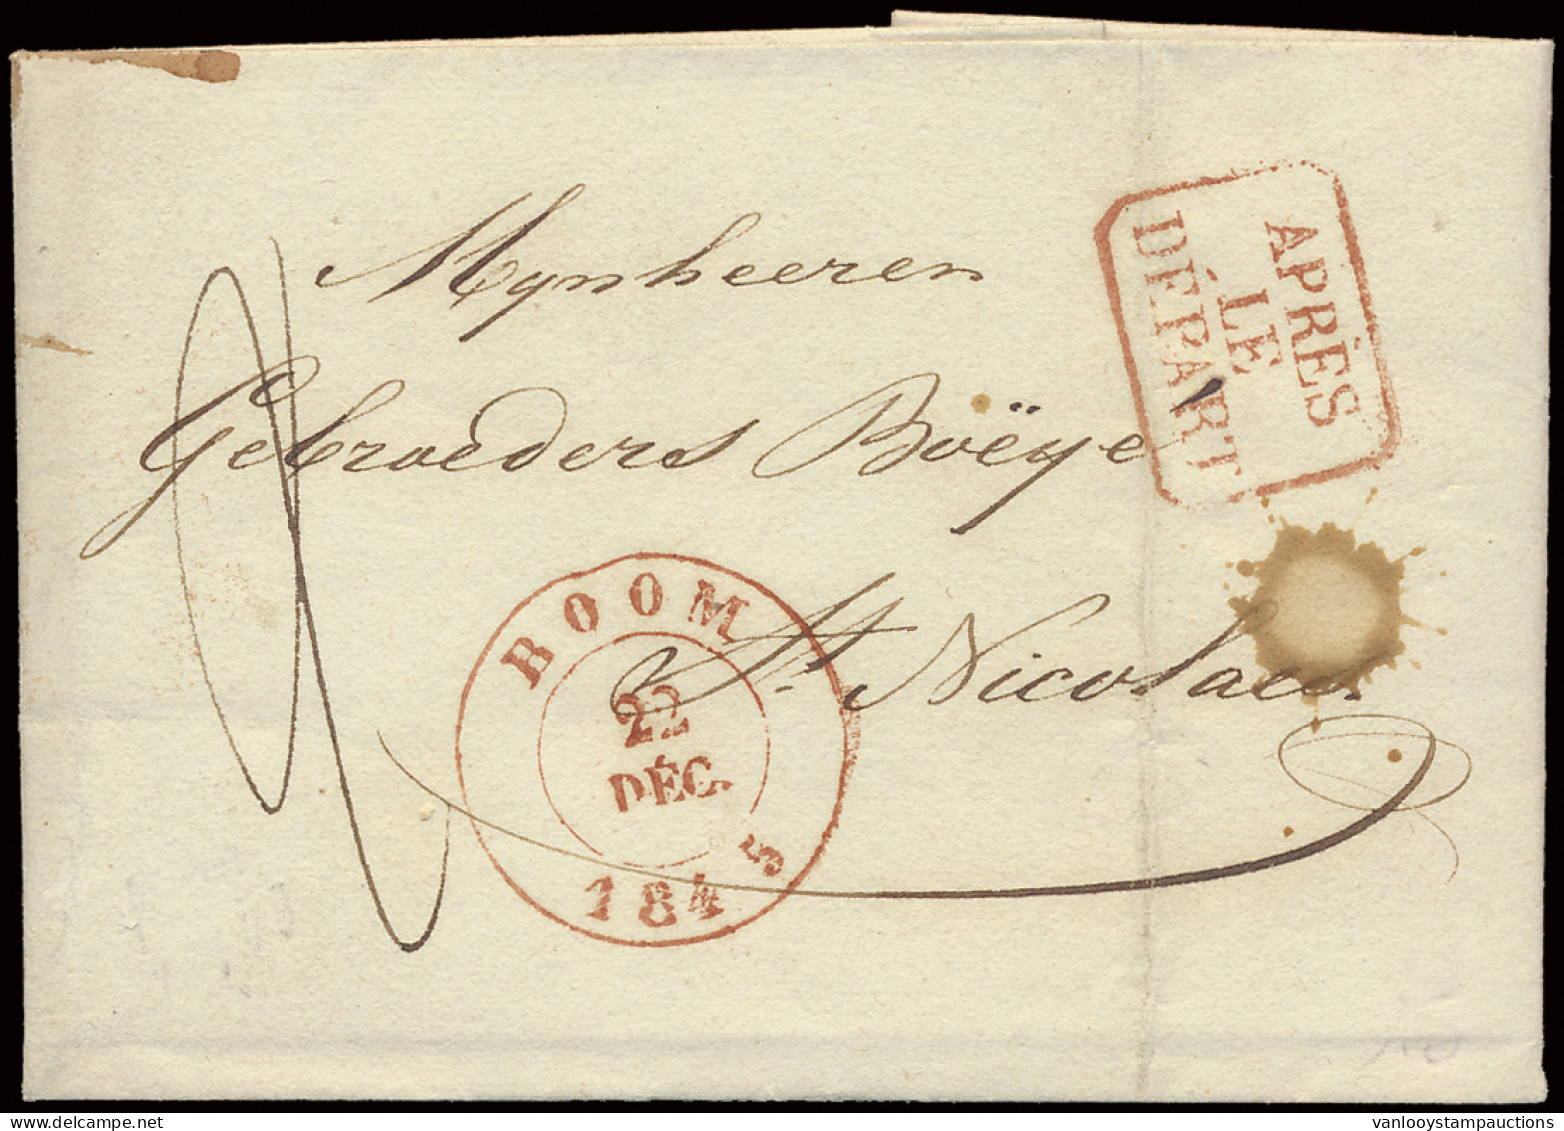 APRÈS
LE
DÉPART
Mynheeren
Gebroeders Boëye
St. Nicolaes.
BOOM
22
DÉC.
1845
vanlooystampauctions